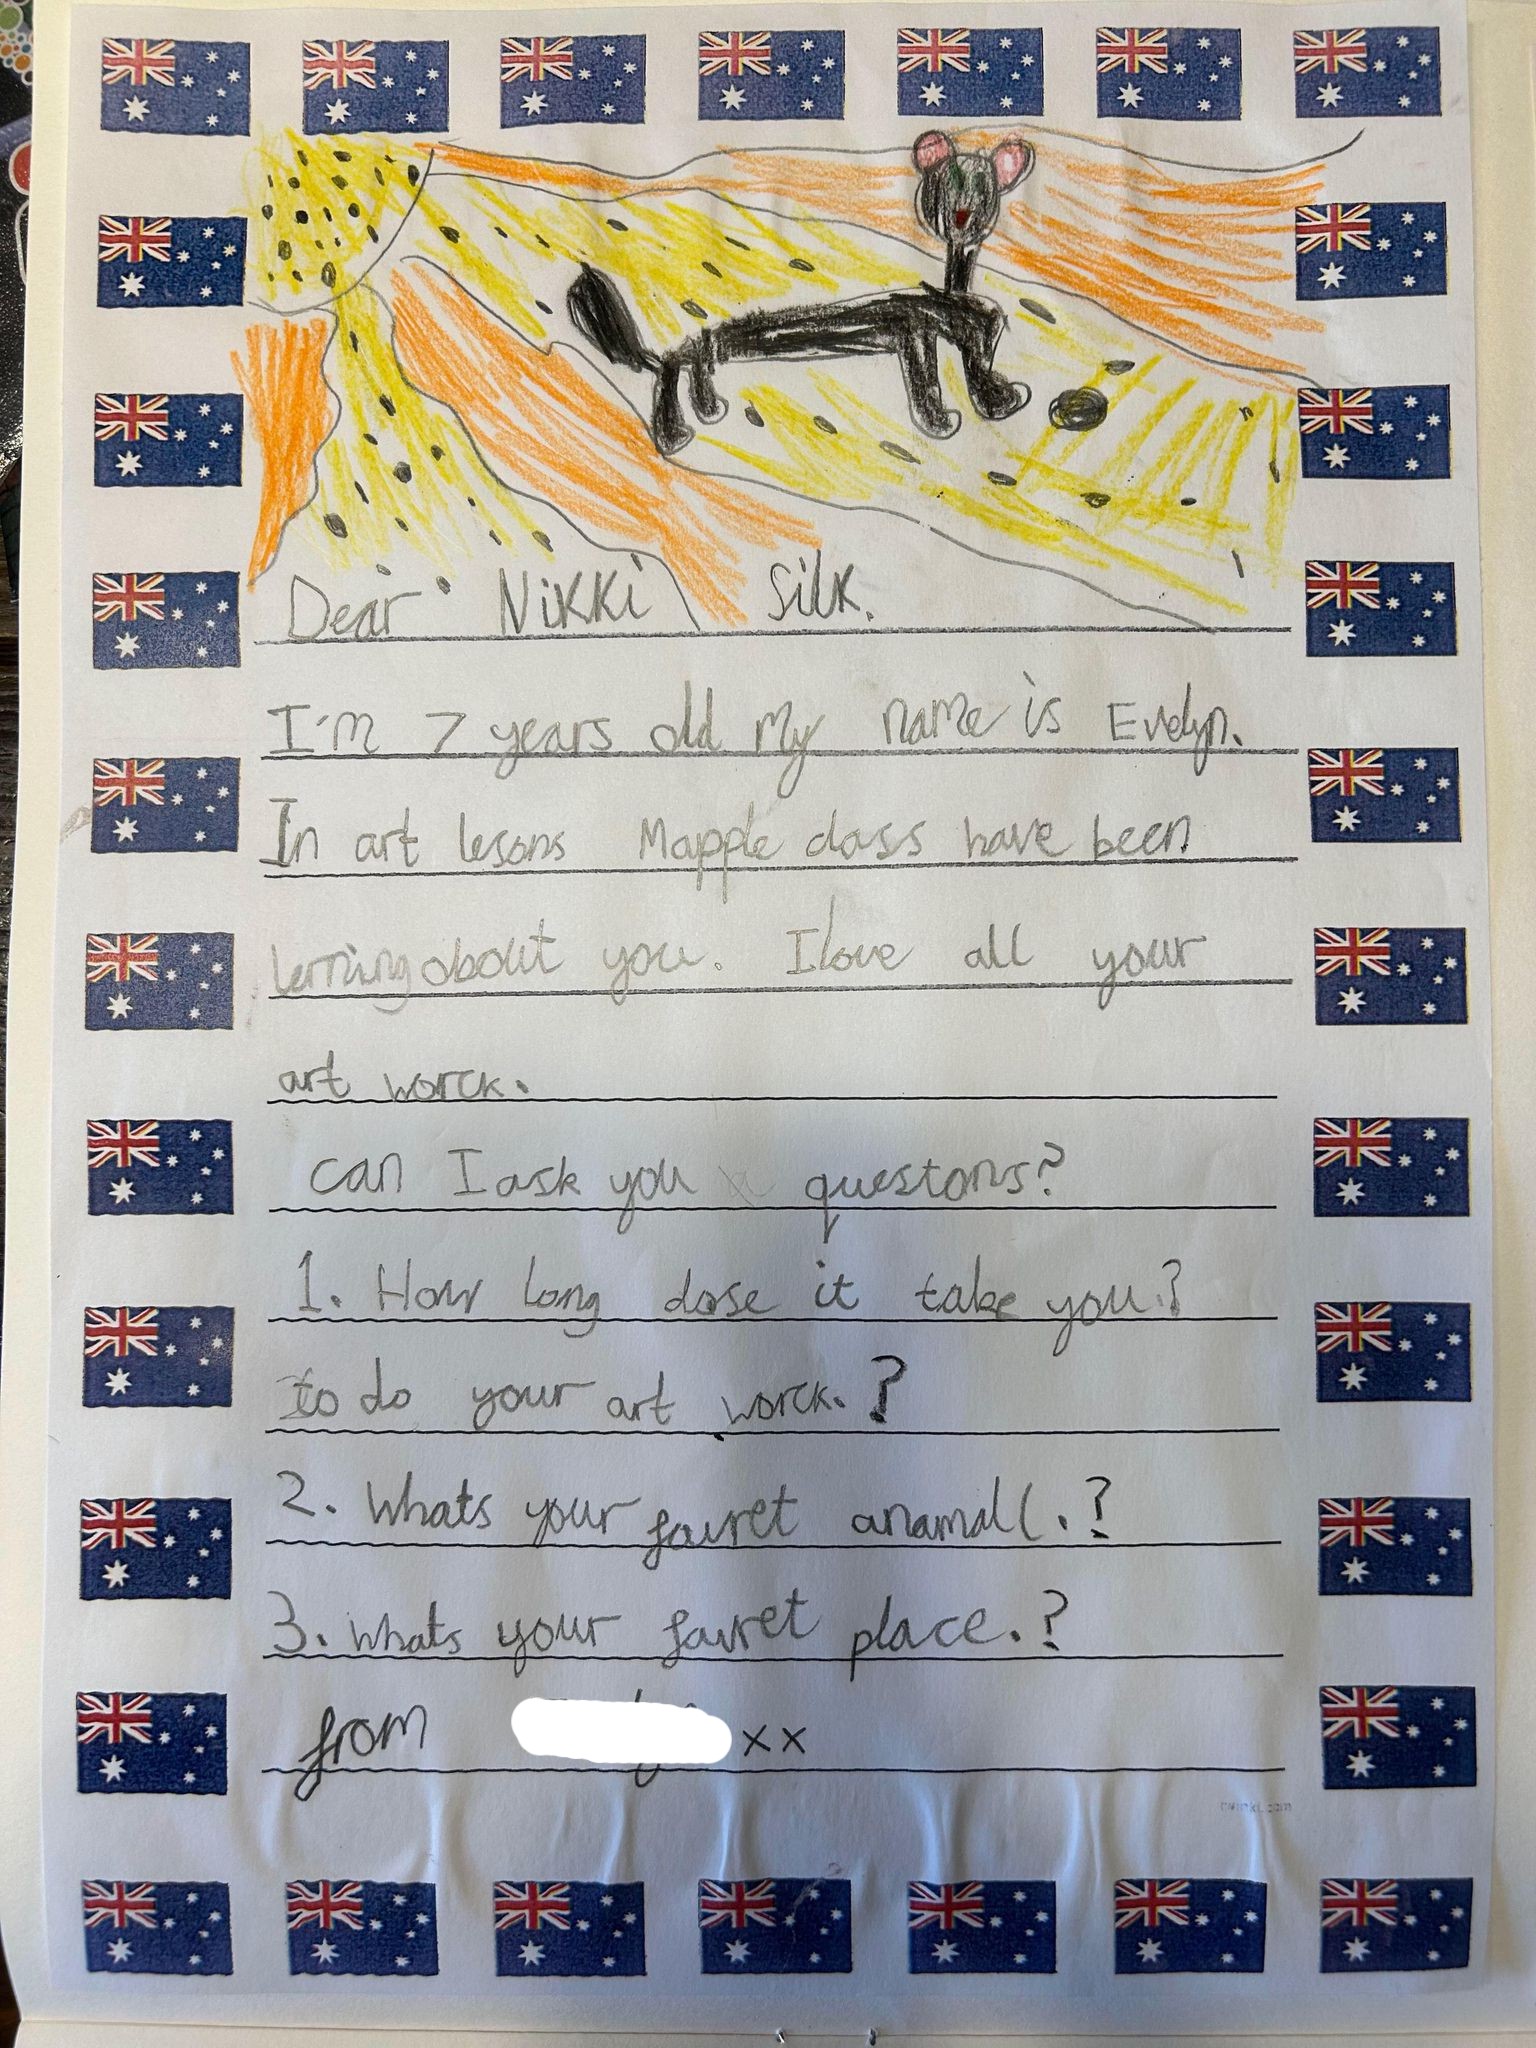 Dear Nikki Silk.
I'm 7 years old My name is Evelyn.
In art lesons Mapple class have been
lerning about you. I love all your
art worck.
can I ask you questons?
1. How long dose it take you?
to do your art worck.?
2. Whats your favret anamall.?
3. Whats your favret place.?
from xx